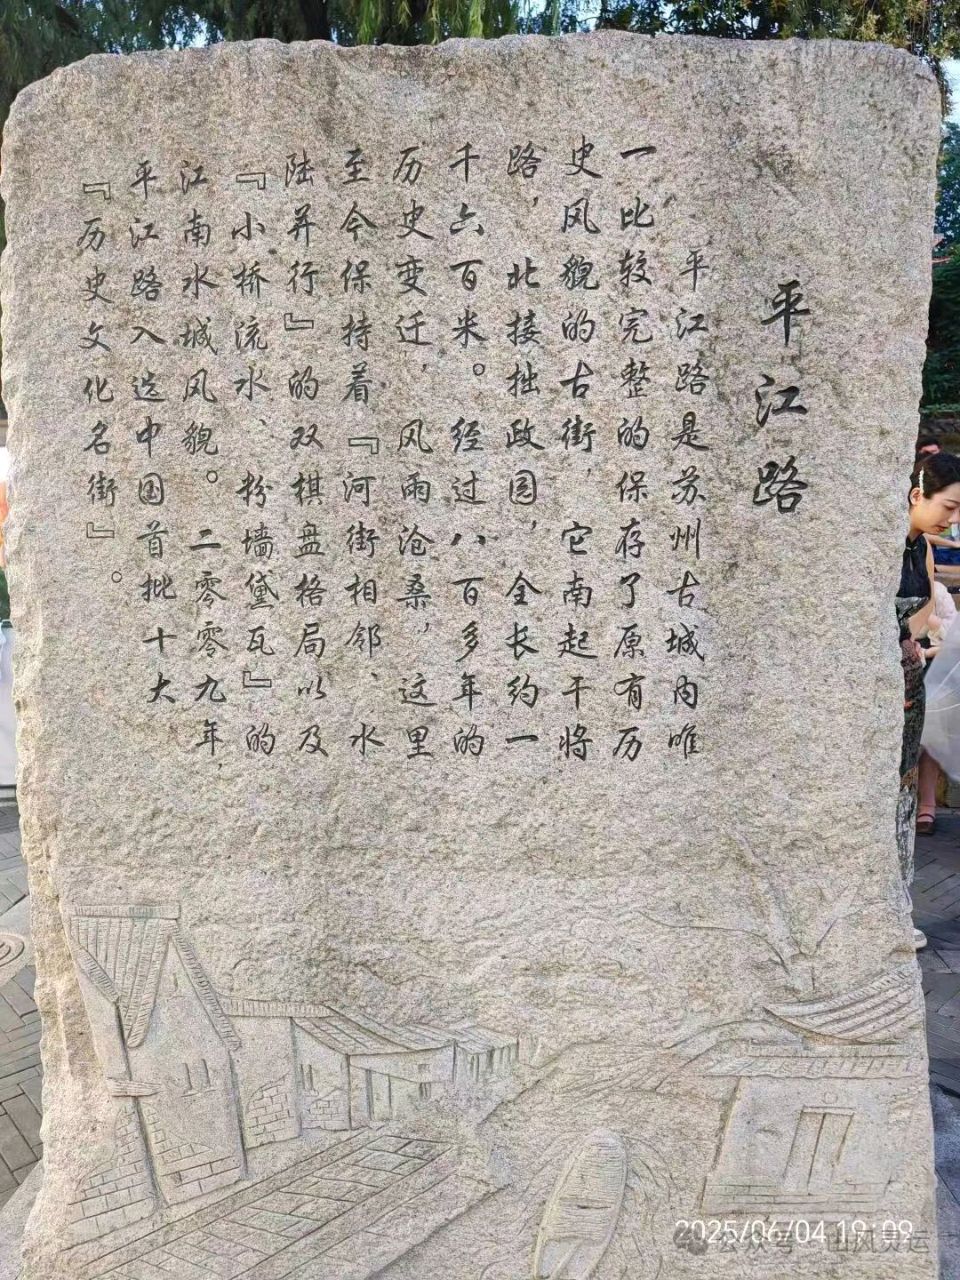 平江路
平江路是苏州古城内唯
一比较完整的保存了原有历
史风貌的古街，它南起干将
路，北接拙政园，全长约一
千六百米。经过八百多年的
历史变迁，风雨沧桑，这里
至今保持着『河街相邻、水
陆并行』的双棋盘格局以及
『小桥流水、粉墙黛瓦』的
江南水城风貌。二零零九年，
平江路入选中国首批十大
『历史文化名街』。
2025/06/04 19:09
公众号